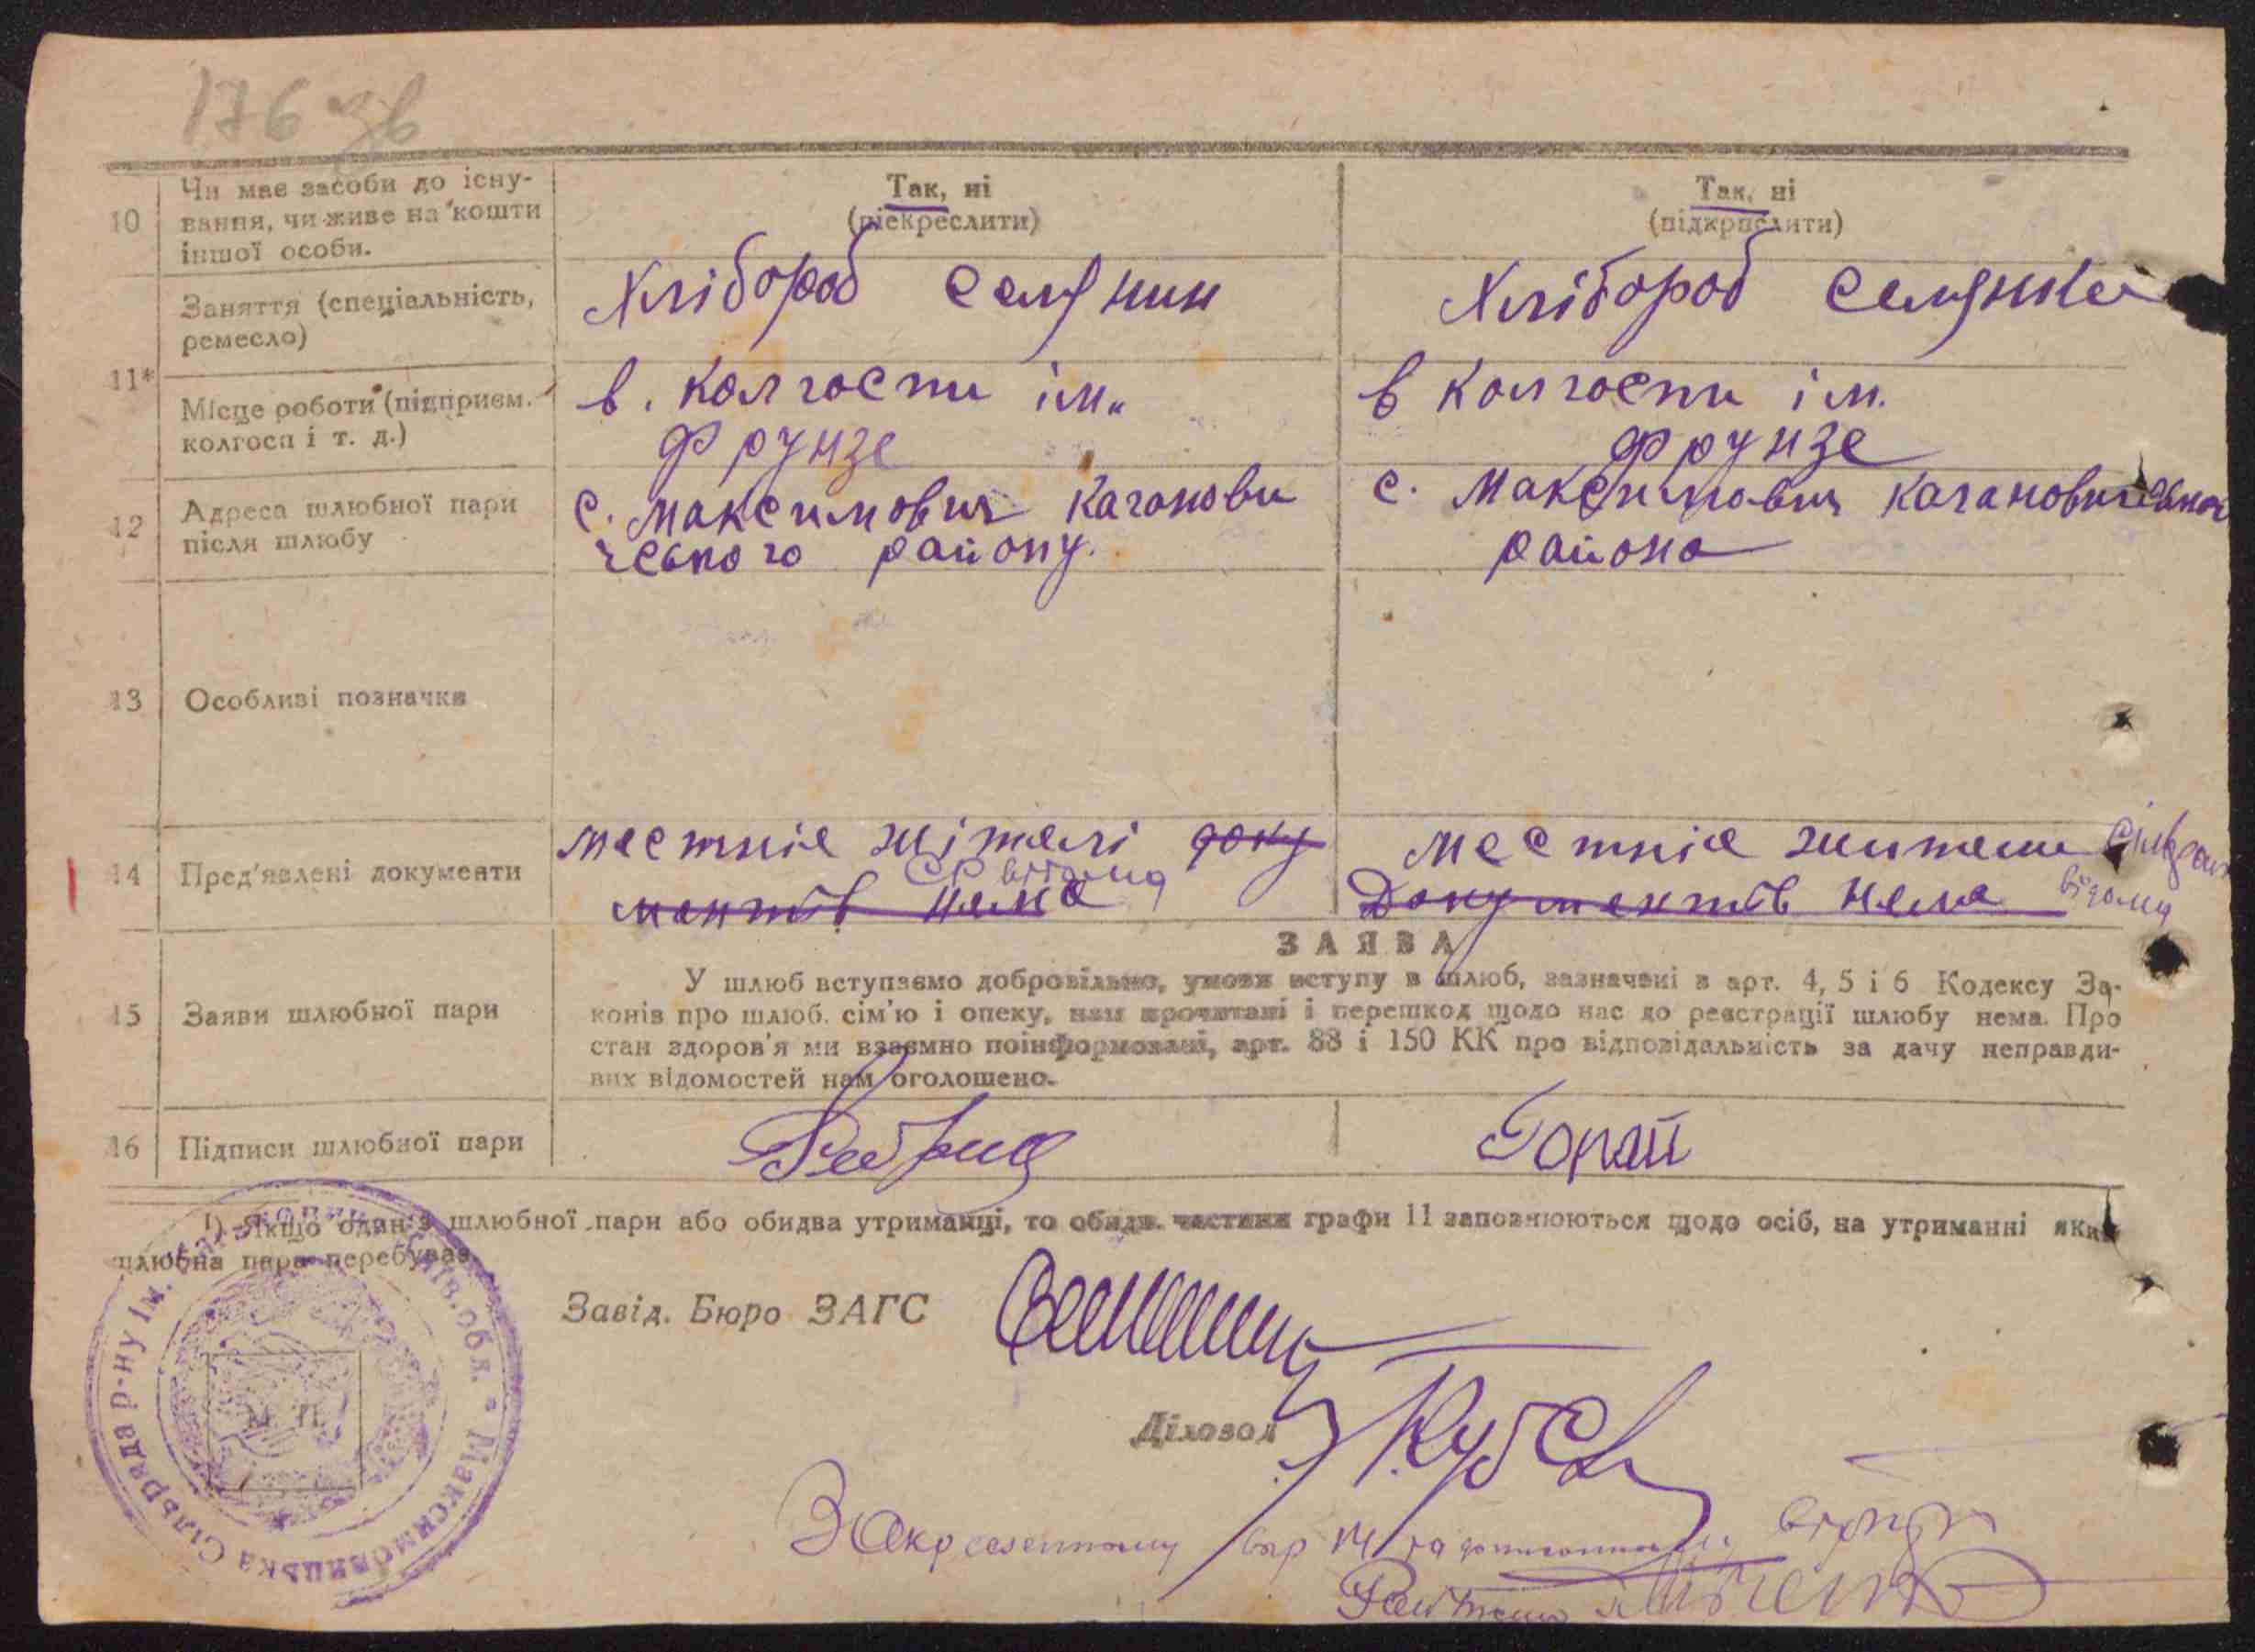 176 зв
10
Чи має засоби до існу-
вання, чи живе на кошти
іншої особи.
Так, ні
(піекреслити)
Так, ні
(підкрислити)
11*
Заняття (спеціальність,
ремесло)
Хлібороб селянин
Хлібороб селянка
Місце роботи (підприєм.
колгосп і т. д.)
в. колгоспи ім.
Фрунзе
в колгоспи ім.
Фрунзе
12
Адреса шлюбної пари
після шлюбу
с. Максимович Каганови
чського району.
с. Максимович Кагановичського
района
13
Особливі позначки
14
Пред'явлені документи
местніе жітелі доку
ментів нема
местніе жители
Документів нема
відома
15
Заяви шлюбної пари
ЗАЯВА
У шлюб вступаємо добровільно, умови вступу в шлюб, зазначені в арт. 4, 5 і 6 Кодексу За-
конів про шлюб. сім'ю і опеку, нам прочитані і перешкод щодо нас до реєстрації шлюбу нема. Про
стан здоров'я ми взаємно поінформовані, арт. 88 і 150 КК про відповідальність за дачу неправди-
вих відомостей нам оголошено.
16
Підписи шлюбної пари
Горай
1) Якщо один з шлюбної пари або обидва утриманці, то обидві частини графи 11 заповнюються щодо осіб, на утриманні яких
шлюбна пара перебуває.
Завід. Бюро ЗАГС
Діловод
М. П.
Максимовицька Сільрада р-ну ім. Кагановича Київ. обл.
Закресленному